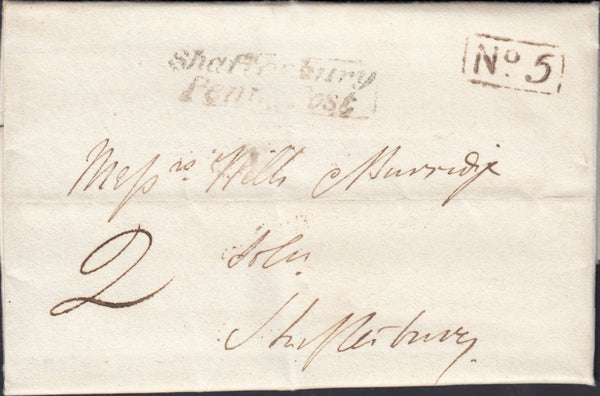 Shaftesbury
Penny Post
No. 5
Messrs Wills & Burridge
2
Solrs
Shaftesbury